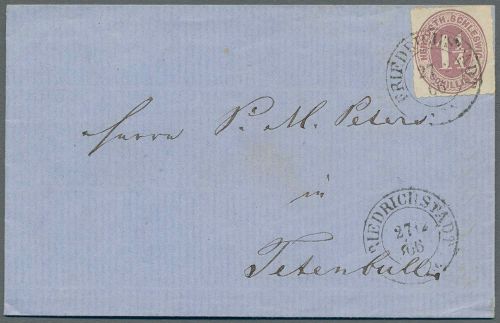 HERZOGTH. SCHLESWIG
1¼
FRIEDRICHSTADT
Herrn P. M. Peters.
in
Tetenbüll.
FRIEDRICHSTADT
27 12
66